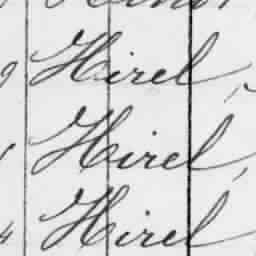 Hirel,
Hirel,
Hirel